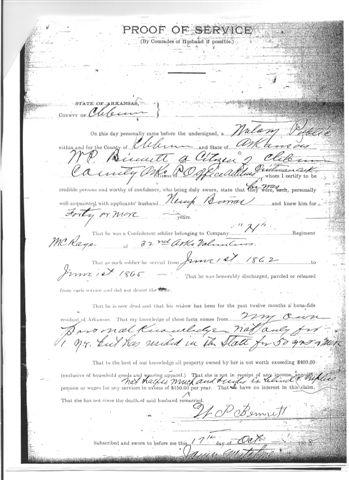 PROOF OF SERVICE
(By Comrades of Husband if possible.)
STATE OF ARKANSAS,
COUNTY OF Cleburne
On this day personally came before the undersigned, a Notary Public
within and for the County of Cleburne and State of Arkansas
W P Bennett a Citizen of Cleburne
County Ark. P.O. whom I certify to be
credible persons and worthy of confidence, who being duly sworn, state that he was personally
well acquainted with applicants' husband and knew him for
Forty or more years.
That he was a Confederate soldier belonging to Company "H" Regiment
McRays 32nd Arks Volunteers
That as such soldier he served from June 1st 1862 to
June 1st 1865 That he was honorably discharged, paroled or released
from such service and did not desert the same.
That he is now dead and that his widow has been for the past twelve months a bona-fide
resident of Arkansas. That my knowledge of these facts comes from My own
Personal Knowledge Not only for
1 yr. but has resided in the State for 50 yrs
That to the best of our knowledge all property owned by her is not worth exceeding $400.00
(exclusive of household goods and wearing apparel.) That she is not in receipt of any income,
pension or wages for any service in excess of $150.00 per year. That we have no interest in this claim.
That she has not since the death of said husband remarried.
W. P. Bennett
Subscribed and sworn to before me this 17th day of Oct